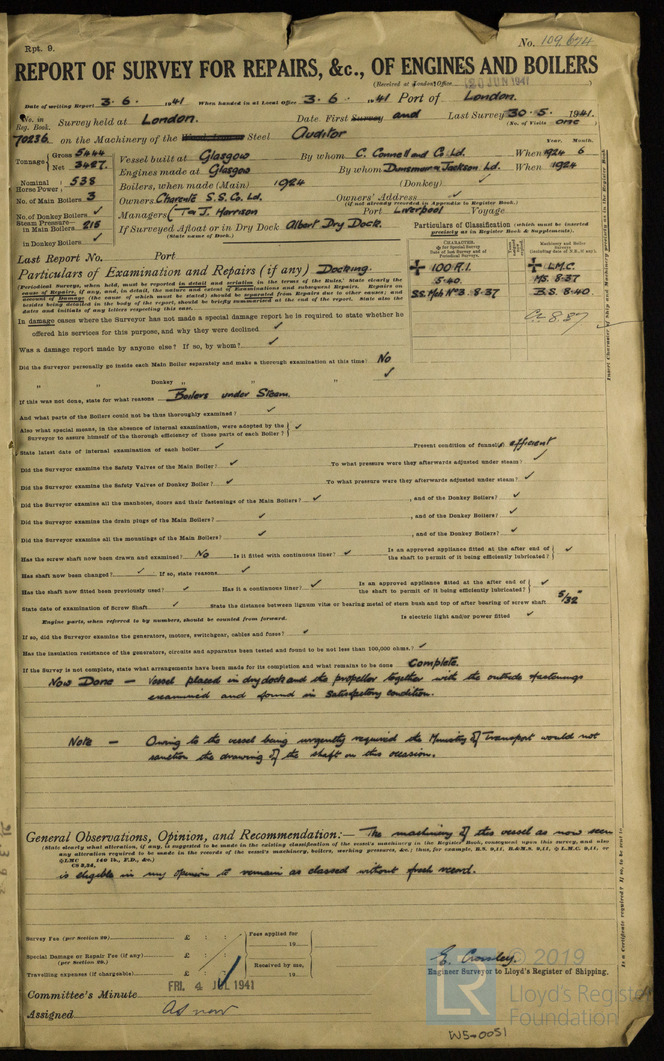 Rpt. 9.
No. 109,674
REPORT OF SURVEY FOR REPAIRS, &c., OF ENGINES AND BOILERS
(Received at London Office JUN 1941)
Date of writing Report 3.6.1941 When handed in at Local Office 3.6.1941 Port of London.
No. in Reg. Book. 70236 Survey held at London. Date. First Survey and Last Survey 30.5.1941.
(No. of Visits one)
on the Machinery of the Steel Auditor
Tonnage { Gross 5444 Net 3427. Vessel built at Glasgow By whom C. Connell and Co Ld. When 1924 6
Year. Month.
Engines made at Glasgow By whom Dunsmuir & Jackson Ld. When 1924
Nominal Horse Power } 538
Boilers, when made (Main) 1924 (Donkey) ✓
No. of Main Boilers 3 Owners Charente S.S. Co. Ld. Owners' Address ✓
(if not already recorded in Appendix to Register Book.)
No. of Donkey Boilers ✓ Managers (T. & J. Harrison Port Liverpool Voyage
Steam Pressure in Main Boilers 215 If Surveyed Afloat or in Dry Dock Albert Dry Dock.
(State name of Dock.)
in Donkey Boilers ✓
Particulars of Classification (which must be inserted precisely as in Register Book & Supplements).
Last Report No. Port
CHARACTER.
Machinery and Boiler Surveys
+ 100 A.1. + L.M.C.
5.40 MS. 8.37
SS. No 3. 8.37 B.S. 8.40
Particulars of Examination and Repairs (if any) Docking.
(Periodical Surveys, when held, must be reported in detail and seriatim in the terms of the Rules. State clearly the cause of Repairs, if any, and, in detail, the nature and extent of Examinations and subsequent Repairs. Repairs on account of Damage (the cause of which must be stated) should be separated from Repairs due to other causes; and besides being detailed in the body of the report, should be briefly summarized at the end of the report. State also the dates and initials of any letters respecting this case.
In damage cases where the Surveyor has not made a special damage report he is required to state whether he
offered his services for this purpose, and why they were declined ✓
Was a damage report made by anyone else? If so, by whom? ✓
Did the Surveyor personally go inside each Main Boiler separately and make a thorough examination at this time? No
" " Donkey " " " ✓
If this was not done, state for what reasons Boilers under Steam.
And what parts of the Boilers could not be thoroughly examined? ✓
Also what special means, in the absence of internal examination, were adopted by the Surveyor to assure himself of the thorough efficiency of those parts of each Boiler? } ✓
State latest date of internal examination of each boiler ✓ Present condition of funnel/s efficient
Did the Surveyor examine the Safety Valves of the Main Boiler? ✓ To what pressure were they afterwards adjusted under steam? ✓
Did the Surveyor examine the Safety Valves of Donkey Boiler? ✓ To what pressure were they afterwards adjusted under steam? ✓
Did the Surveyor examine all the manholes, doors and their fastenings of the Main Boilers? ✓, and of the Donkey Boilers? ✓
Did the Surveyor examine the drain plugs of the Main Boilers? ✓, and of the Donkey Boilers? ✓
Did the Surveyor examine all the mountings of the Main Boilers? ✓, and of the Donkey Boilers? ✓
Has the screw shaft now been drawn and examined? No Is it fitted with continuous liner? ✓ Is an approved appliance fitted at the after end of the shaft to permit of it being efficiently lubricated? } ✓
Has shaft now been changed? ✓ If so, state reasons ✓
Has the shaft now fitted been previously used? ✓ Has it a continuous liner? ✓ Is an approved appliance fitted at the after end of the shaft to permit of it being efficiently lubricated? } ✓
State date of examination of Screw Shaft ✓ State the distance between lignum vitæ or bearing metal of stern bush and top of after bearing of screw shaft 5/32"
Engine parts, when referred to by numbers, should be counted from forward. Is electric light and/or power fitted ✓
If so, did the Surveyor examine the generators, motors, switchgear, cables and fuses? ✓
Has the insulation resistance of the generators, circuits and apparatus been tested and found to be not less than 100,000 ohms? ✓
If the Survey is not complete, state what arrangements have been made for its completion and what remains to be done Complete.
Now Done — Vessel placed in dry dock and the propeller together with the outside fastenings
examined and found in satisfactory condition.
Note — Owing to the vessel being urgently required the Ministry of Transport would not
sanction the drawing of the shaft on this occasion.
General Observations, Opinion, and Recommendation:— The machinery of this vessel as now seen
(State clearly what alteration, if any, is suggested to be made in the existing classification of the vessel's machinery in the Register Book, consequent upon this survey, and also any alteration required to be made in the records of the vessel's machinery, boilers, working pressures, &c.; thus, for example, B.S. 9,11, B&M.S. 9,11, LMC 9,11, or LMC 140 lb., F.D., &c.)
is eligible in my opinion to remain as classed without fresh record.
Survey Fee (per Section 29) £ : :
Fees applied for
19
Special Damage or Repair Fee (if any) (per Section 29.) £ : :
Received by me,
19
Travelling expenses (if chargeable) £ : :
E. Crossley.
Engineer Surveyor to Lloyd's Register of Shipping.
Committee's Minute FRI. 4 JUL 1941
Assigned As now
© 2019
LR
Lloyd's Register
Foundation
W5-0051